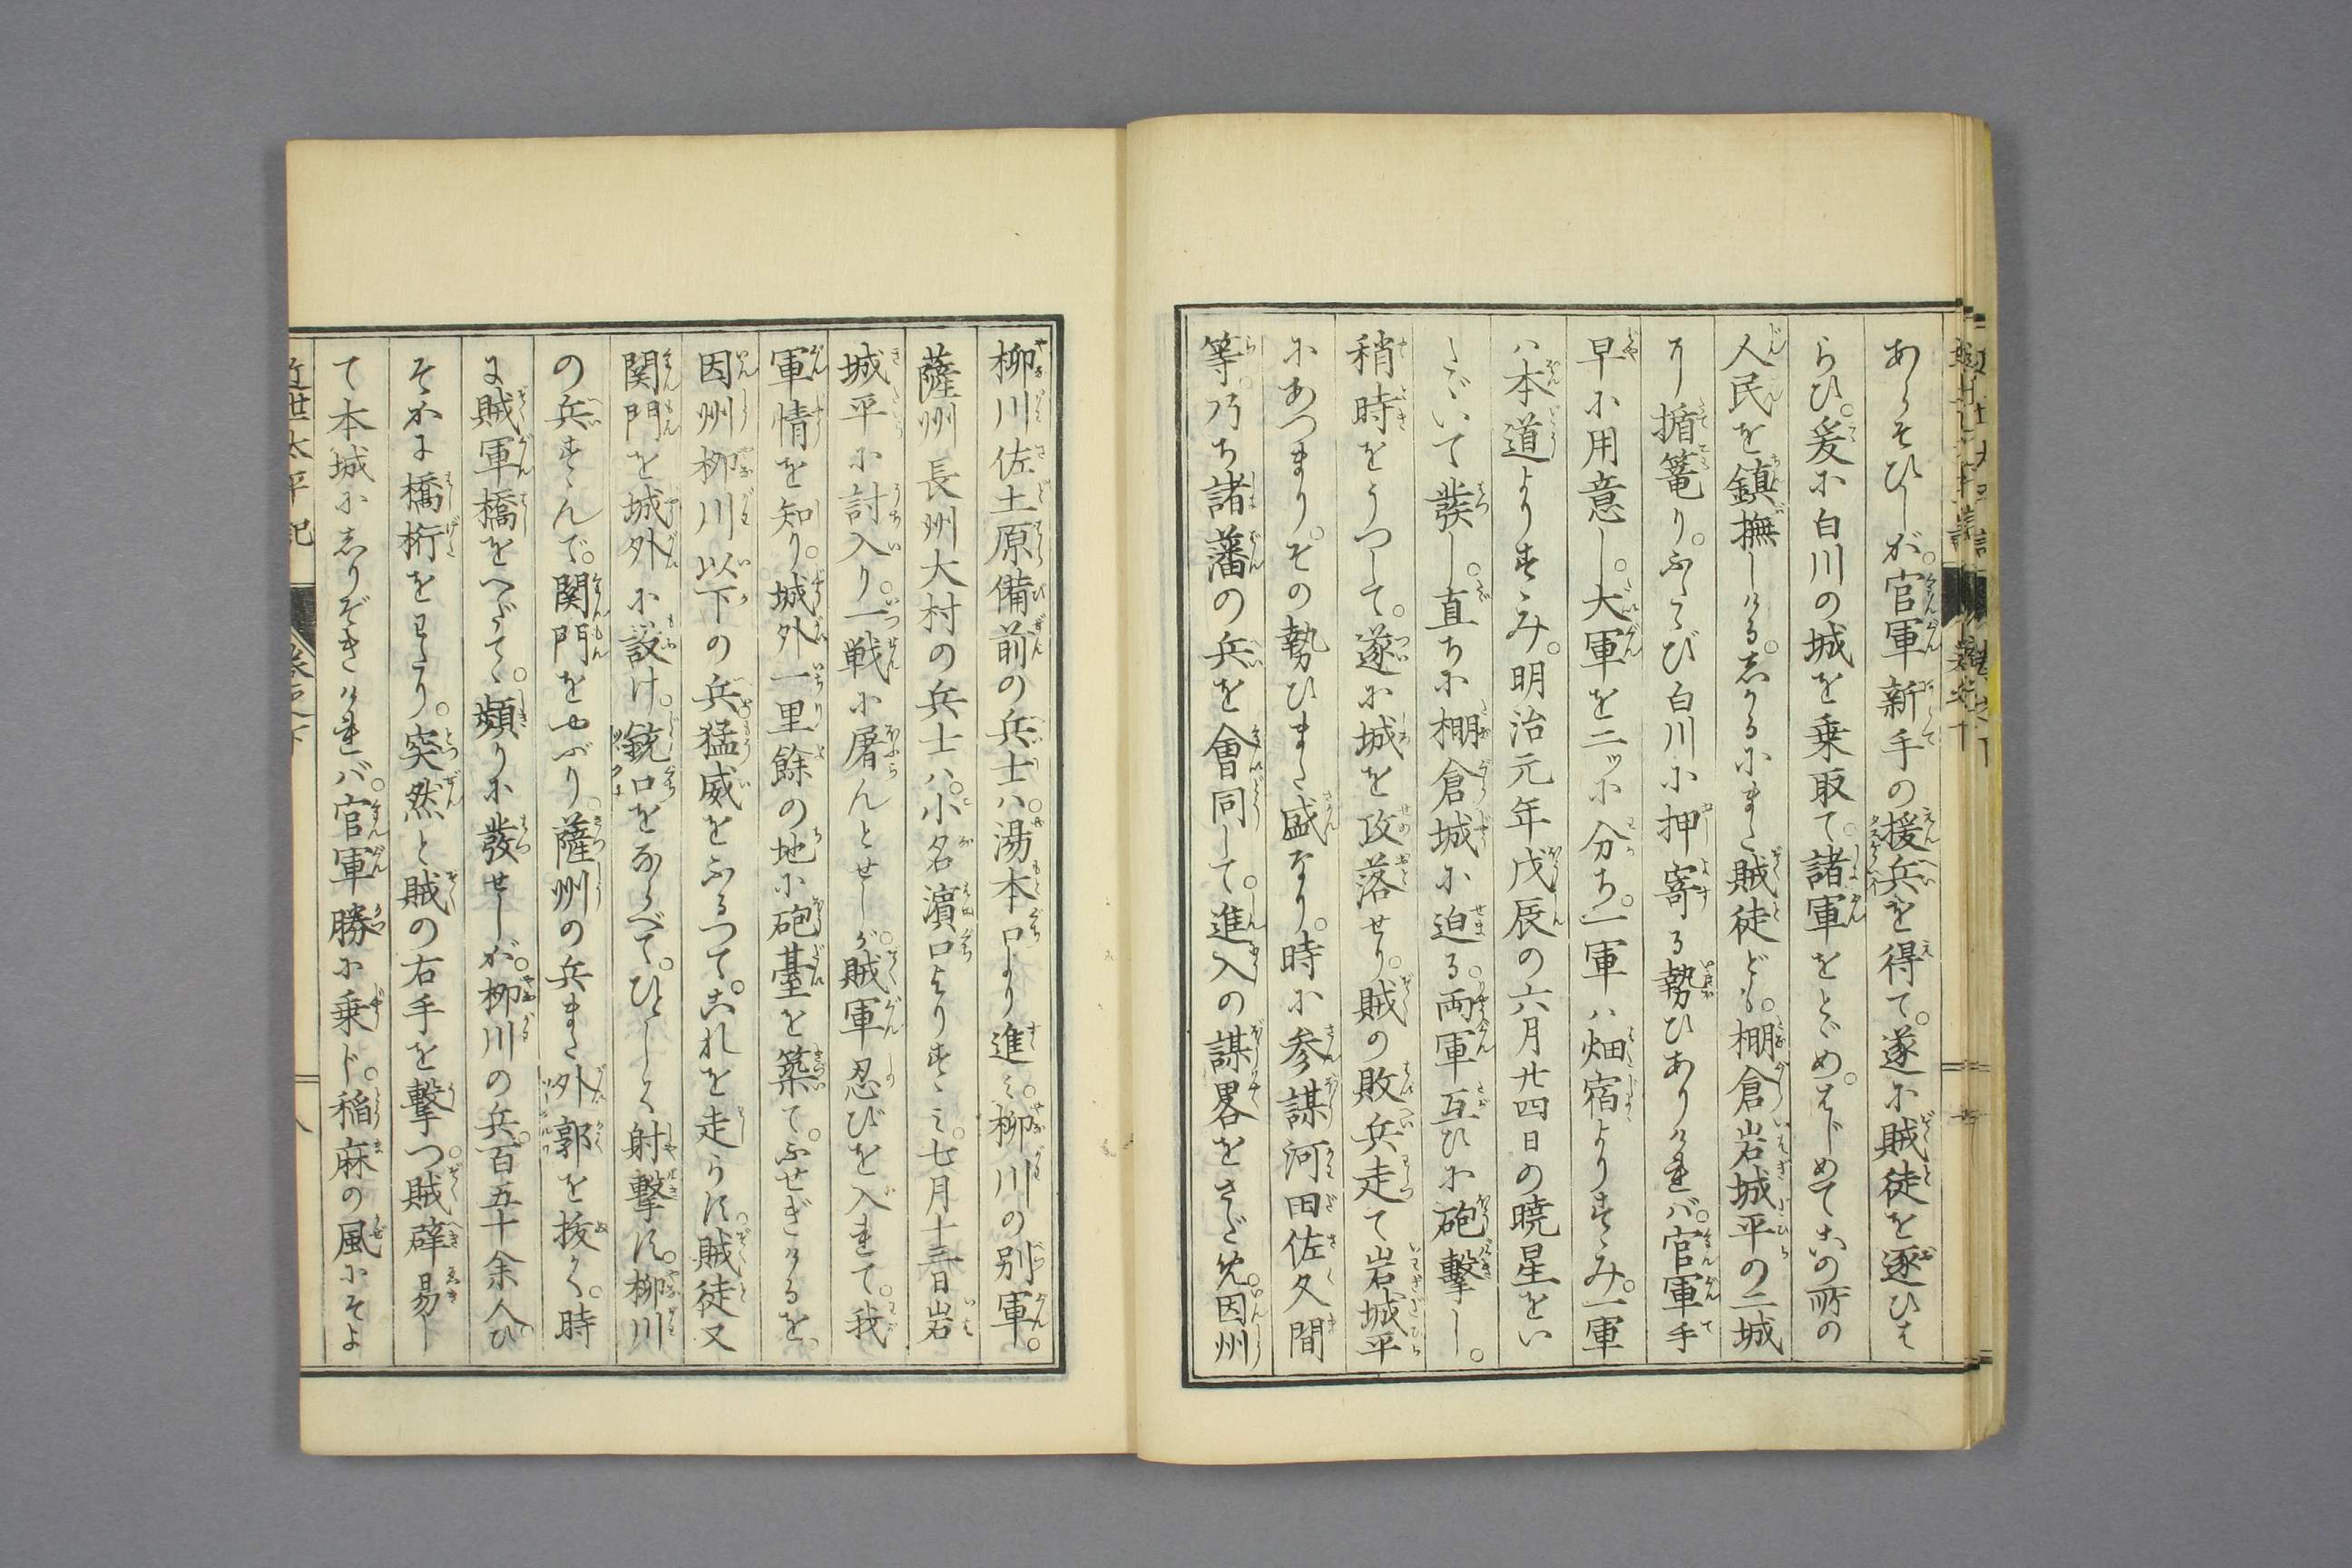 あらそひしが。官軍新手の援兵を得て。遂に賊徒を逐ひは
らひ。爰に白川の城を乗取て。諸軍をとゞめ。はじめてこの所の
人民を鎮撫しける。しかるにまた賊徒ども。棚倉岩城平の二城
に楯篭り。ふたゝび白川に押寄る勢ひありければ。官軍手
早に用意し。大軍を二ツに分ち。一軍ハ畑宿よりすゝみ。一軍
ハ本道よりすゝみ。明治元年戊辰の六月廿四日の暁星をい
たゞいて發し。直ちに棚倉城に迫る。両軍互ひに砲撃し。
稍時をうつして。遂に城を攻落せり。賊の敗兵走て岩城平
にあつまり。その勢ひまた盛なり。時に参謀河田佐久間
等。乃ち諸藩の兵を會同して。進入の謀畧をさだめ。因州
柳川佐土原備前の兵士ハ。湯本口より進み。柳川の別軍。
薩州長州大村の兵士ハ。小名濵口よりすゝみ。七月十三日岩
城平に討入り。一戦に屠らんとせしが。賊軍忍びを入れて。我
軍情を知り。城外一里餘の地に砲臺を築て。ふせぎけるを。
因州柳川以下の兵。猛威をふるつて。これを走らす。賊徒又
関門を城外に設け。銃口をならべて。ひとしく射撃す。柳川
の兵すゝんで。関門をやぶり。薩州の兵また外郭を抜く。時
に賊軍橋をへだてゝ。頻りに發せしが。柳川の兵。百五十余人ひ
そかに橋桁をわたり。突然と賊の右手を撃つ。賊辟易し
て本城にしりぞきければ。官軍勝に乗じ。稲麻の風にそよ
近世太平記　巻之下　八